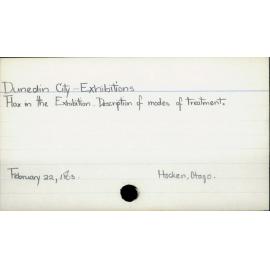 Dunedin City - Exhibitions
Flax in the Exhibition. Description of modes of treatment.
February 22,
Hocken, Otago.